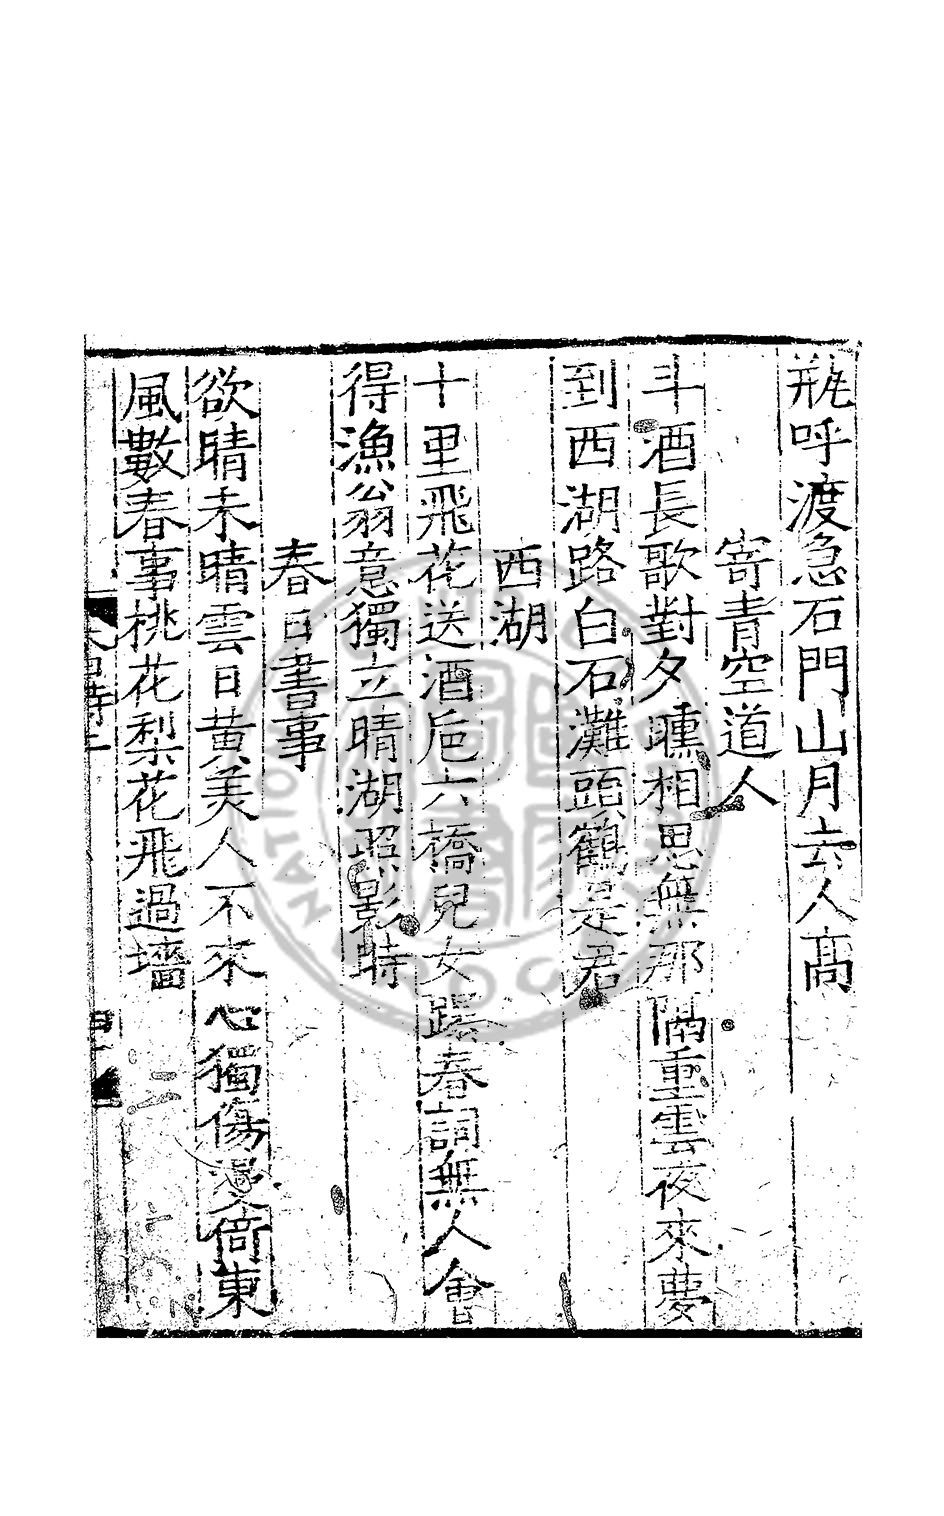 瓶呼渡急石門山月去人高
寄青空道人
斗酒長歌對夕曛相思無那隔重雲夜來夢
到西湖路白石灘頭鶴是君
西湖
十里飛花送酒卮六橋兒女踏春詞無人會
得漁翁意獨立晴湖照影時
春日書事
欲晴未晴雲日黃美人不來心獨傷漫倚東
風數春事桃花梨花飛過墻